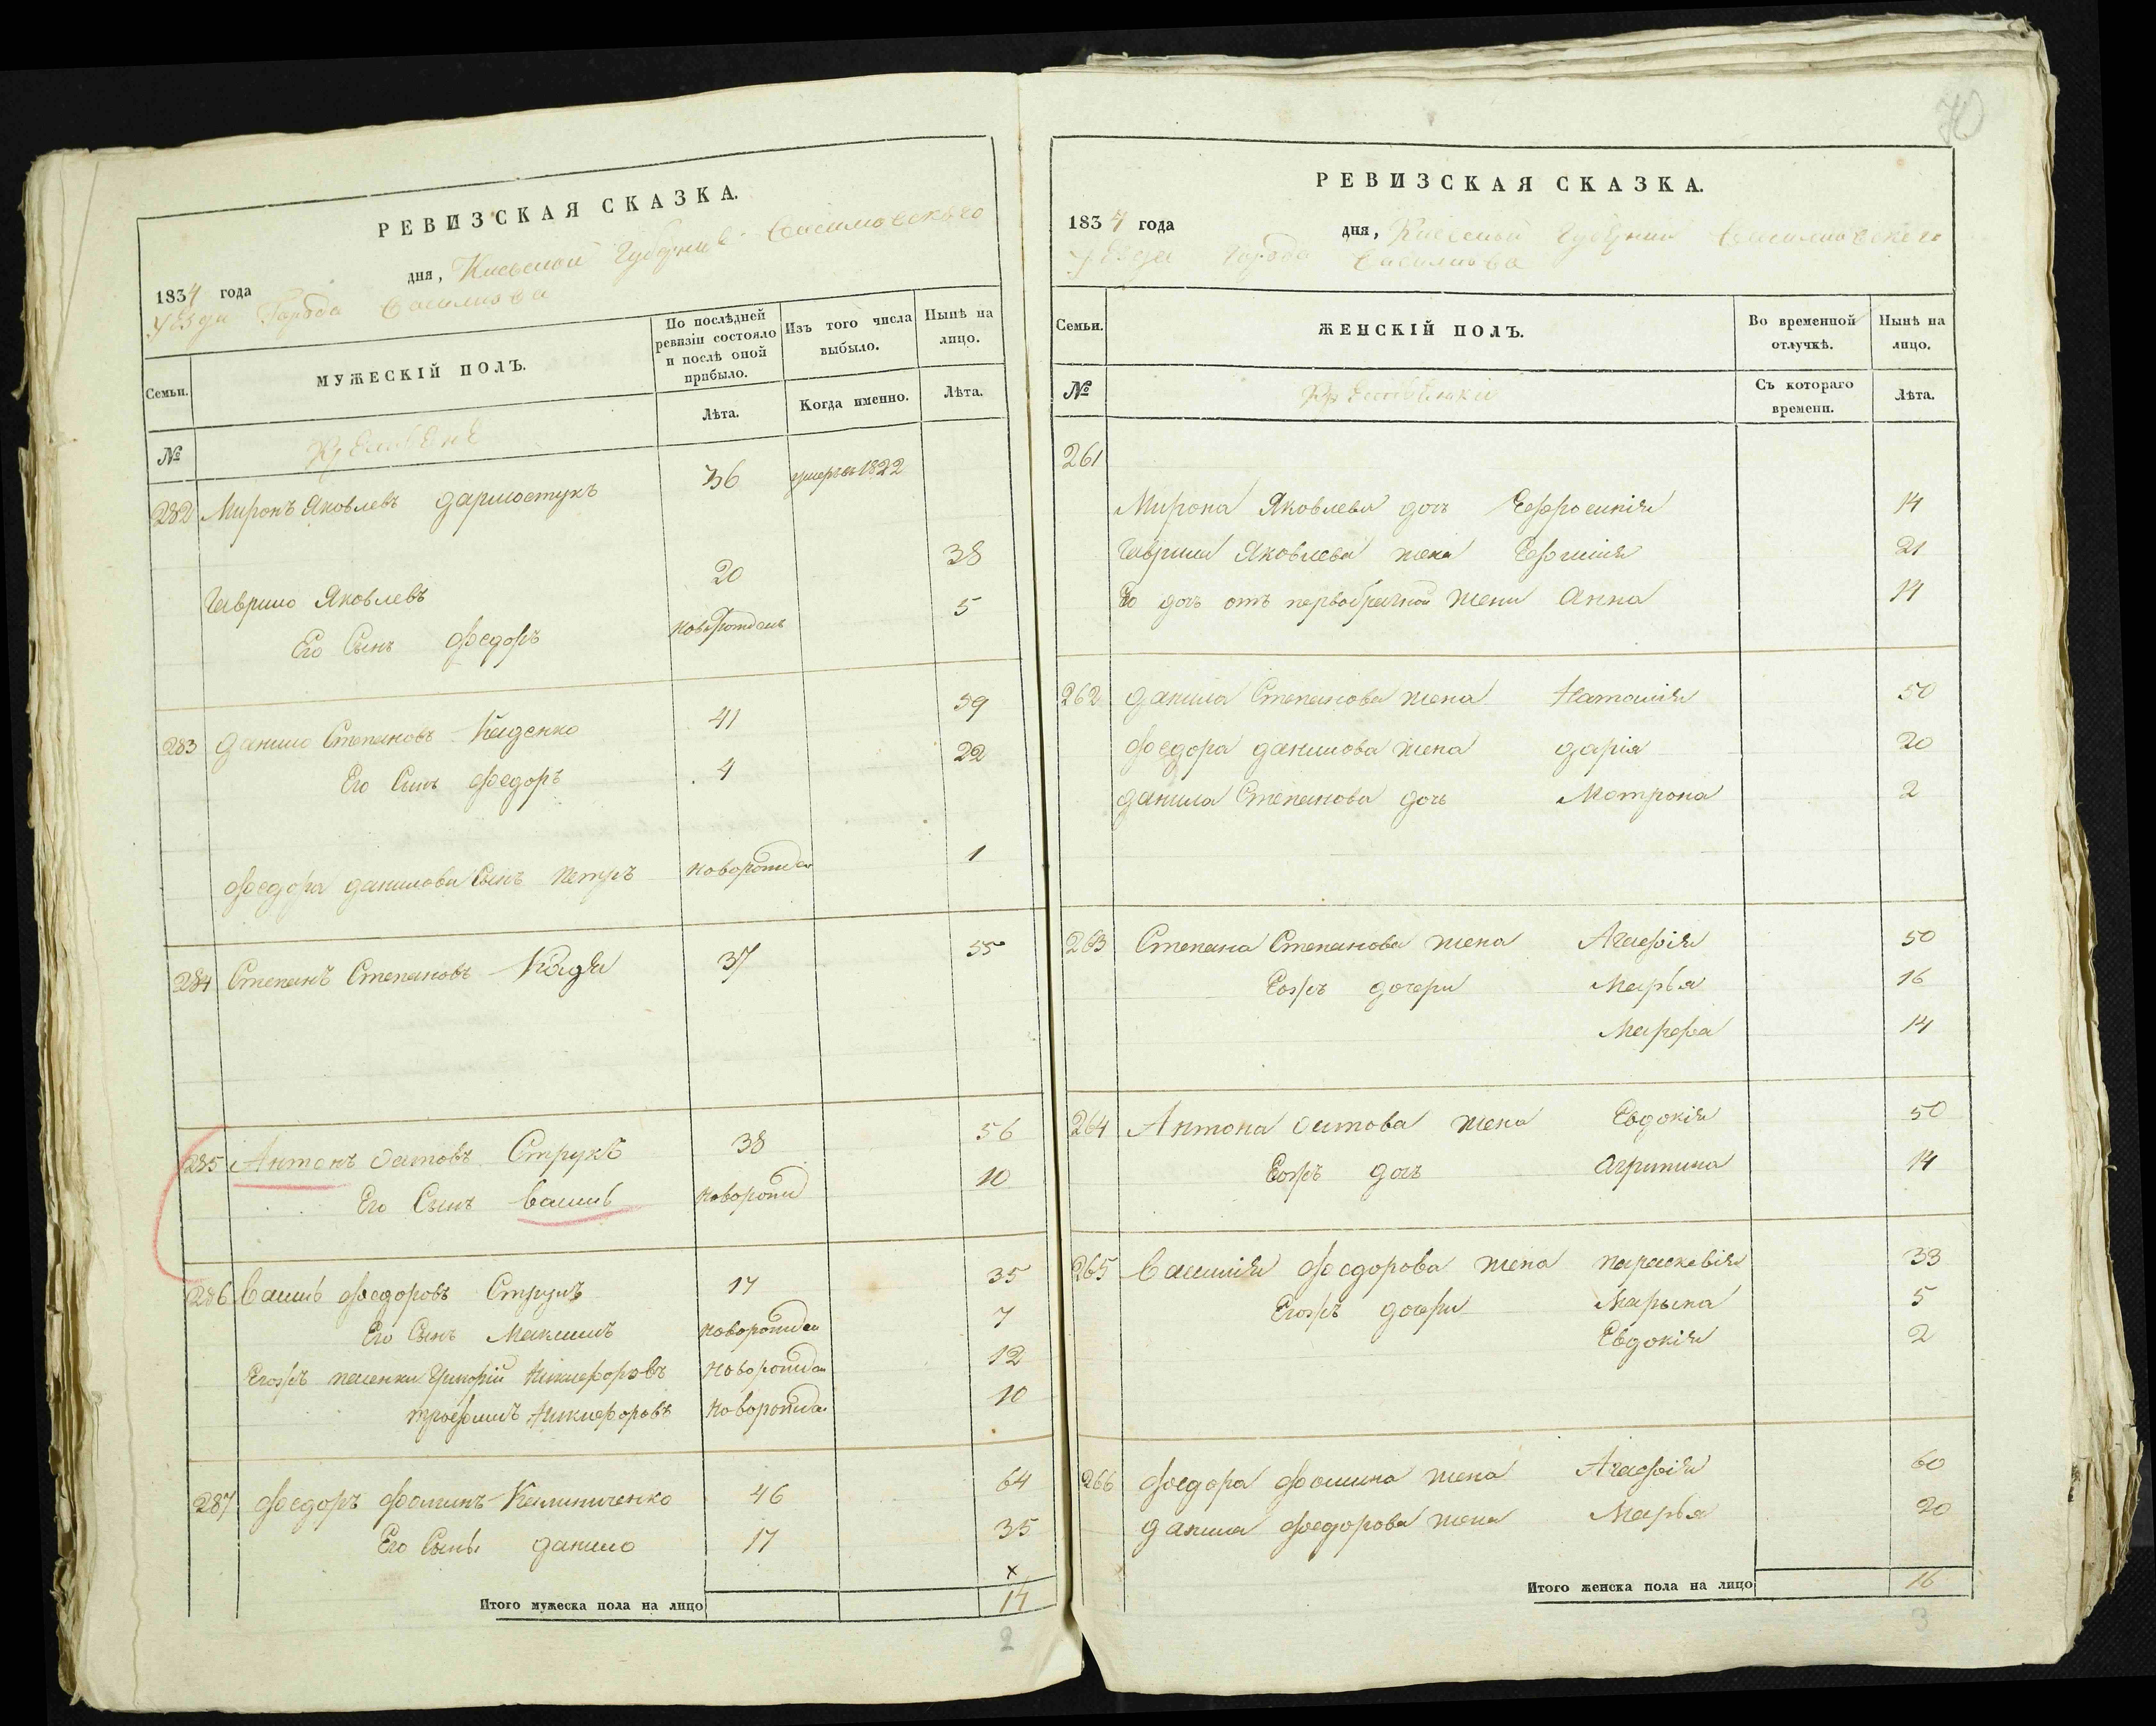 РЕВИЗСКАЯ СКАЗКА.
1834 года дня, Киевской Губернии Васильковского
уѣзда Города Василькова
Семьи. МУЖЕСКІЙ ПОЛЪ. По послѣдней ревизіи состояло и послѣ оной прибыло. Изъ того числа выбыло. Нынѣ на лицо.
№ Крестьяне Лѣта. Когда именно. Лѣта.
282 Миронъ Яковлевъ Дармостукъ 36 умеръ въ 1822
Гаврило Яковлевъ 20 38
Его Сынъ Федоръ новорожден 5
283 Данило Степановъ Каденко 41 59
Его Сынъ Федоръ 4 22
Федора Данилова Сынъ Петръ новорожден 1
284 Степанъ Степановъ 37 55
285 Антонъ Остаповъ Струкъ 38 56
Его Сынъ Василь новорожд 10
286 Василь Федоровъ Струкъ 17 35
Его Сынъ Максимъ новорожден 7
Егожъ Григорій Никифоровъ новорожден 12
Трофимъ Никифоровъ новорожден 10
287 Федоръ Фоминъ Калиниченко 46 64
Его Сынъ Данило 17 35
x
Итого мужеска пола на лицо 14
2
70
РЕВИЗСКАЯ СКАЗКА.
1834 года дня, Киевской Губернии Васильковского
уѣзда Города Василькова
Семьи. ЖЕНСКІЙ ПОЛЪ. Во временной отлучкѣ. Нынѣ на лицо.
№ Крестьянки Съ котораго времени. Лѣта.
261
Мирона Яковлева дочь Ефросинія 14
Гаврила Яковлева жена Ефимія 21
Его дочь отъ первобрачной жены Анна 14
262 Данила Степанова жена Наталія 50
Федора Данилова жена Дарія 20
Данила Степанова дочь Мотрона 2
263 Степана Степанова жена Агафія 50
Егожъ дочери Марья 16
Марфа 14
264 Антона Остапова жена Евдокія 50
Егожъ дочь Агрипина 14
265 Василія Федорова жена Параскевія 33
Егожъ дочери Марьяна 5
Евдокія 2
266 Федора Фомина жена Агафія 60
Данила Федорова жена Марья 20
Итого женска пола на лицо 16
3